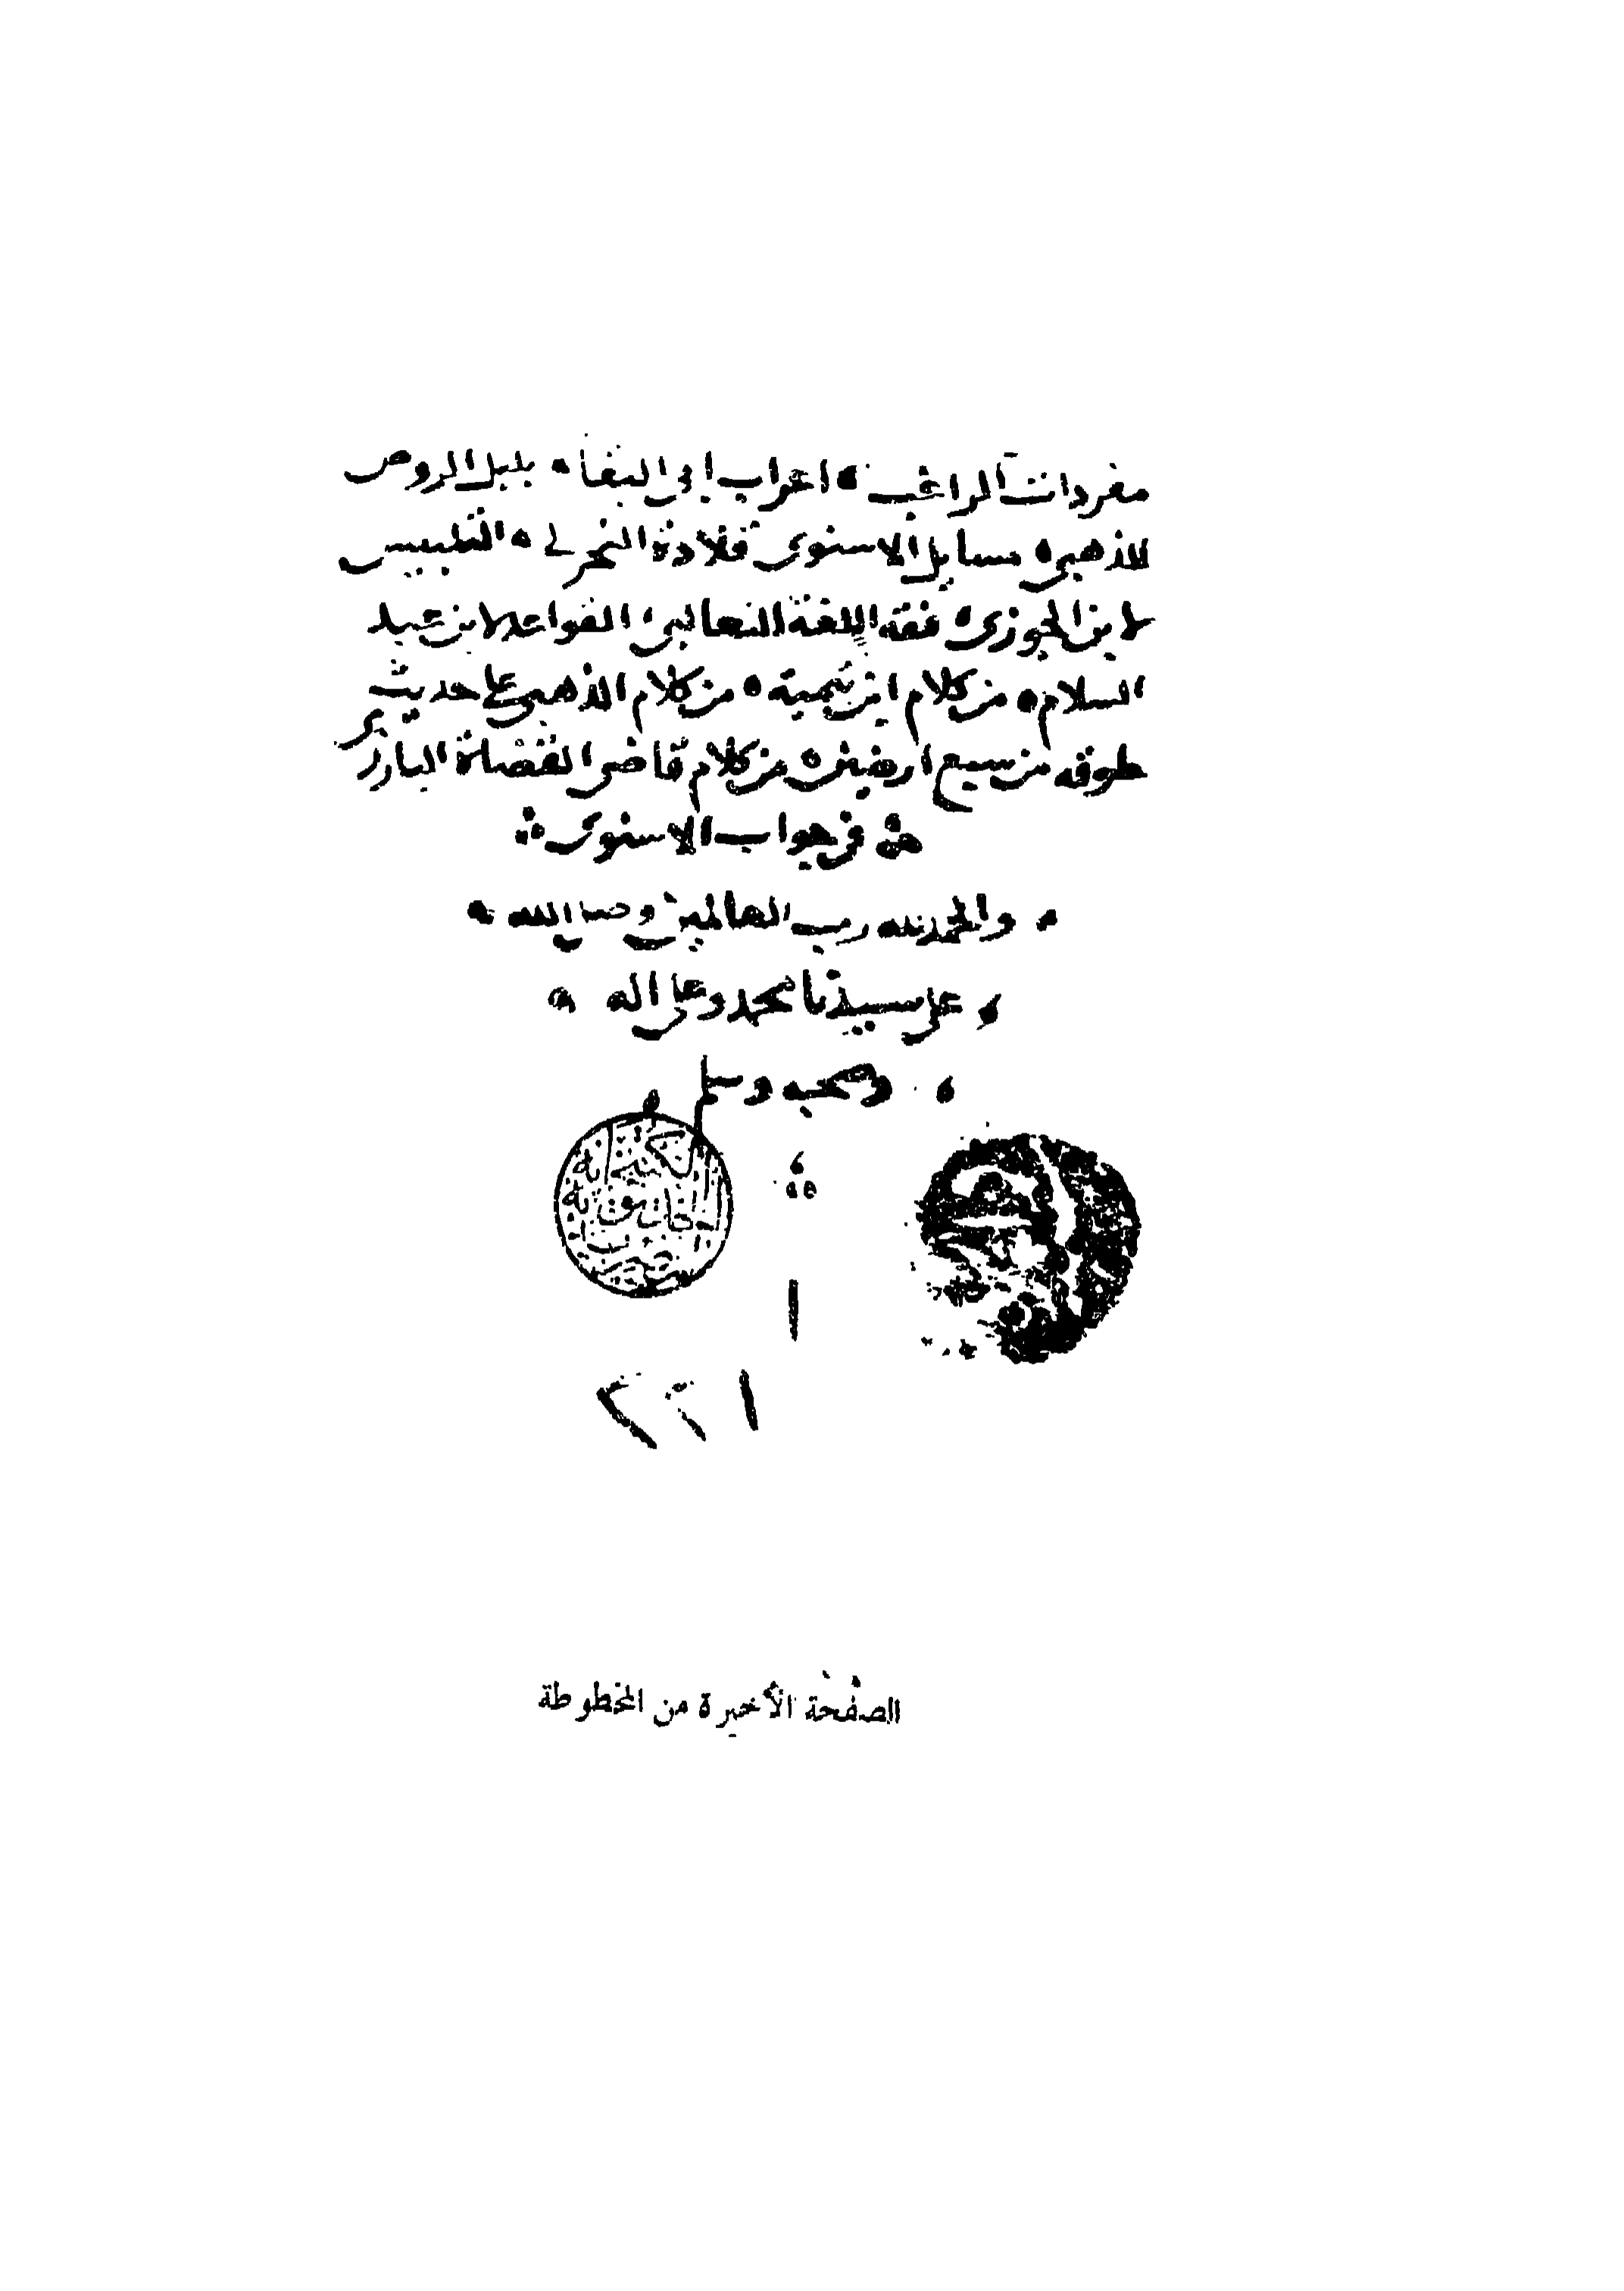 مفردات الراغب ٥ اعراب ابي البقا ٥ بلبل الروض
للذهبي ٥ مسايل الاسنوى قلادة النحر لى ٥ التلبيس
لابن الجوزى ٥ فقه اللغة الثعالبى ، القواعد لابن عبد
السلام ٥ من كلام ابن تيمية ٥ من كلام الذهبى على حديث
طوقه من سبع ارضين ٥ من كلام قاضى القضاة البارزى
فى جواب الاسنوى
والحمد لله رب العالمين وصلى الله
على سيدنا محمد وعلى اله
وصحبه وسلم
الكتبخانة
١
١٢٢
الصفحة الأخيرة من المخطوطة